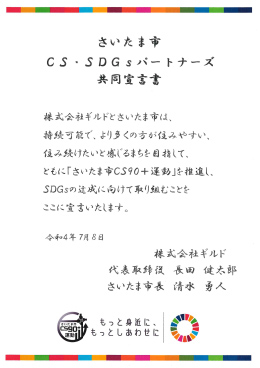 さいたま市
CS・SDGsパートナーズ
共同宣言書
株式会社ギルドとさいたま市は、
持続可能で、より多くの方が住みやすい、
住み続けたいと感じるまちを目指して、
ともに「さいたま市CS90+運動」を推進し、
SDGsの達成に向けて取り組むことを
ここに宣言いたします。
令和4年7月8日
株式会社ギルド
代表取締役 長田 健太郎
さいたま市長 清水 勇人
さいたまで
CS90
運動
もっと身近に、
もっとしあわせに